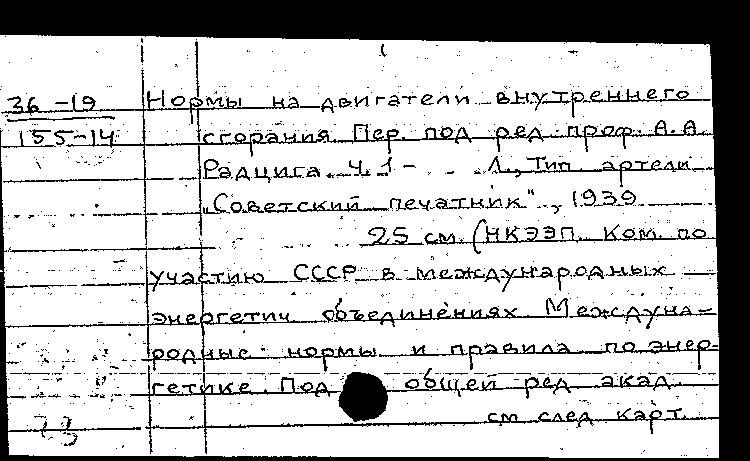 36-19
155-14
Нормы на двигатели внутреннего
сгорания. Пер. под ред. проф. А. А.
Радцига. Ч. 1 - Л., Тип. артели
"Советский печатник", 1939
25 см. (НКЭЭП. Ком. по
участию СССР в международных
энергетич. объединениях. Междуна-
родные нормы и правила по энер-
гетике. Под общей ред. акад.
см. след. карт.